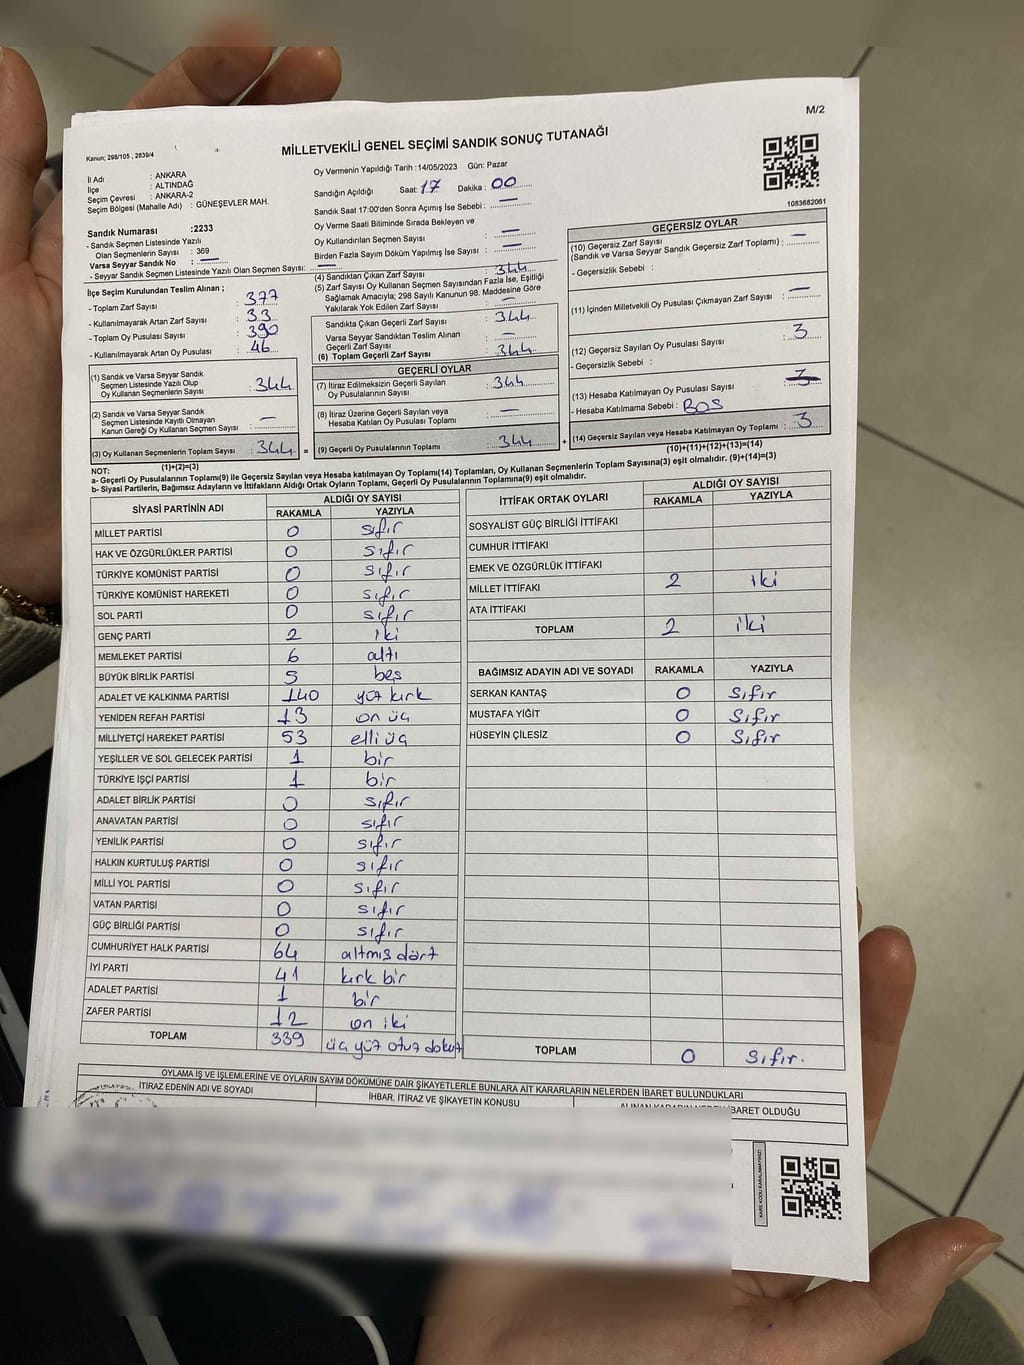 M/2
MİLLETVEKİLİ GENEL SEÇİMİ SANDIK SONUÇ TUTANAĞI
Kanun; 298/105 , 2839/4
İl Adı : ANKARA
İlçe : ALTINDAĞ
Seçim Çevresi : ANKARA-2
Seçim Bölgesi (Mahalle Adı) : GÜNEŞEVLER MAH.
Oy Vermenin Yapıldığı Tarih :14/05/2023 Gün: Pazar
Sandığın Açıldığı Saat: 17 Dakika : 00
Sandık Saat 17:00'den Sonra Açımış İse Sebebi : —
Oy Verme Saati Bitiminde Sırada Bekleyen ve
Oy Kullandırılan Seçmen Sayısı : —
Birden Fazla Sayım Döküm Yapılmış İse Sayısı : —
1083682061
Sandık Numarası :2233
- Sandık Seçmen Listesinde Yazılı
Olan Seçmenlerin Sayısı : 369
Varsa Seyyar Sandık No : —
- Seyyar Sandık Seçmen Listesinde Yazılı Olan Seçmen Sayısı: —
İlçe Seçim Kurulundan Teslim Alınan ;
- Toplam Zarf Sayısı : 377
- Kullanılmayarak Artan Zarf Sayısı : 33
- Toplam Oy Pusulası Sayısı : 390
- Kullanılmayarak Artan Oy Pusulası : 46
(1) Sandık ve Varsa Seyyar Sandık
Seçmen Listesinde Yazılı Olup
Oy Kullanan Seçmenlerin Sayısı : 344
(2) Sandık ve Varsa Seyyar Sandık
Seçmen Listesinde Kayıtlı Olmayan
Kanun Gereği Oy Kullanan Seçmen Sayısı : —
(3) Oy Kullanan Seçmenlerin Toplam Sayısı : 344 =
(1)+(2)=(3)
(4) Sandıktan Çıkan Zarf Sayısı : 344
(5) Zarf Sayısı Oy Kullanan Seçmen Sayısından Fazla İse, Eşitliği
Sağlamak Amacıyla; 298 Sayılı Kanunun 98. Maddesine Göre
Yakılarak Yok Edilen Zarf Sayısı : —
Sandıkta Çıkan Geçerli Zarf Sayısı : 344
Varsa Seyyar Sandıktan Teslim Alınan
Geçerli Zarf Sayısı : —
(6) Toplam Geçerli Zarf Sayısı : 344
GEÇERLİ OYLAR
(7) İtiraz Edilmeksizin Geçerli Sayılan
Oy Pusulalarının Sayısı : 344
(8) İtiraz Üzerine Geçerli Sayılan veya
Hesaba Katılan Oy Pusulası Toplamı : —
(9) Geçerli Oy Pusulalarının Toplamı : 344 +
GEÇERSİZ OYLAR
(10) Geçersiz Zarf Sayısı
(Sandık ve Varsa Seyyar Sandık Geçersiz Zarf Toplamı) : —
- Geçersizlik Sebebi :
(11) İçinden Milletvekili Oy Pusulası Çıkmayan Zarf Sayısı : —
(12) Geçersiz Sayılan Oy Pusulası Sayısı : 3
- Geçersizlik Sebebi :
(13) Hesaba Katılmayan Oy Pusulası Sayısı : 3
- Hesaba Katılmama Sebebi : BOŞ
(14) Geçersiz Sayılan veya Hesaba Katılmayan Oy Toplamı : 3
(10)+(11)+(12)+(13)=(14)
NOT:
a- Geçerli Oy Pusulalarının Toplamı(9) ile Geçersiz Sayılan veya Hesaba katılmayan Oy Toplamı(14) Toplamları, Oy Kullanan Seçmenlerin Toplam Sayısına(3) eşit olmalıdır. (9)+(14)=(3)
b- Siyasi Partilerin, Bağımsız Adayların ve İttifakların Aldığı Ortak Oyların Toplamı, Geçerli Oy Pusulalarının Toplamına(9) eşit olmalıdır.
SİYASİ PARTİNİN ADI ALDIĞI OY SAYISI
RAKAMLA YAZIYLA
MİLLET PARTİSİ 0 sıfır
HAK VE ÖZGÜRLÜKLER PARTİSİ 0 sıfır
TÜRKİYE KOMÜNİST PARTİSİ 0 sıfır
TÜRKİYE KOMÜNİST HAREKETİ 0 sıfır
SOL PARTİ 0 sıfır
GENÇ PARTİ 2 iki
MEMLEKET PARTİSİ 6 altı
BÜYÜK BİRLİK PARTİSİ 5 beş
ADALET VE KALKINMA PARTİSİ 140 yüz kırk
YENİDEN REFAH PARTİSİ 13 on üç
MİLLİYETÇİ HAREKET PARTİSİ 53 elli üç
YEŞİLLER VE SOL GELECEK PARTİSİ 1 bir
TÜRKİYE İŞÇİ PARTİSİ 1 bir
ADALET BİRLİK PARTİSİ 0 sıfır
ANAVATAN PARTİSİ 0 sıfır
YENİLİK PARTİSİ 0 sıfır
HALKIN KURTULUŞ PARTİSİ 0 sıfır
MİLLİ YOL PARTİSİ 0 sıfır
VATAN PARTİSİ 0 sıfır
GÜÇ BİRLİĞİ PARTİSİ 0 sıfır
CUMHURİYET HALK PARTİSİ 64 altmış dört
İYİ PARTİ 41 kırk bir
ADALET PARTİSİ 1 bir
ZAFER PARTİSİ 12 on iki
TOPLAM 339 üç yüz otuz dokuz
İTTİFAK ORTAK OYLARI ALDIĞI OY SAYISI
RAKAMLA YAZIYLA
SOSYALİST GÜÇ BİRLİĞİ İTTİFAKI
CUMHUR İTTİFAKI
EMEK VE ÖZGÜRLÜK İTTİFAKI
MİLLET İTTİFAKI 2 iki
ATA İTTİFAKI
TOPLAM 2 iki
BAĞIMSIZ ADAYIN ADI VE SOYADI RAKAMLA YAZIYLA
SERKAN KANTAŞ 0 Sıfır
MUSTAFA YİĞİT 0 Sıfır
HÜSEYİN ÇİLESİZ 0 Sıfır
TOPLAM 0 Sıfır.
OYLAMA İŞ VE İŞLEMLERİNE VE OYLARIN SAYIM DÖKÜMÜNE DAİR ŞİKAYETLERLE BUNLARA AİT KARARLARIN NELERDEN İBARET BULUNDUKLARI
İTİRAZ EDENİN ADI VE SOYADI İHBAR, İTİRAZ VE ŞİKAYETİN KONUSU ALINAN KARARIN NEDEN İBARET OLDUĞU
KARE KODU KARALAMAYINIZ!